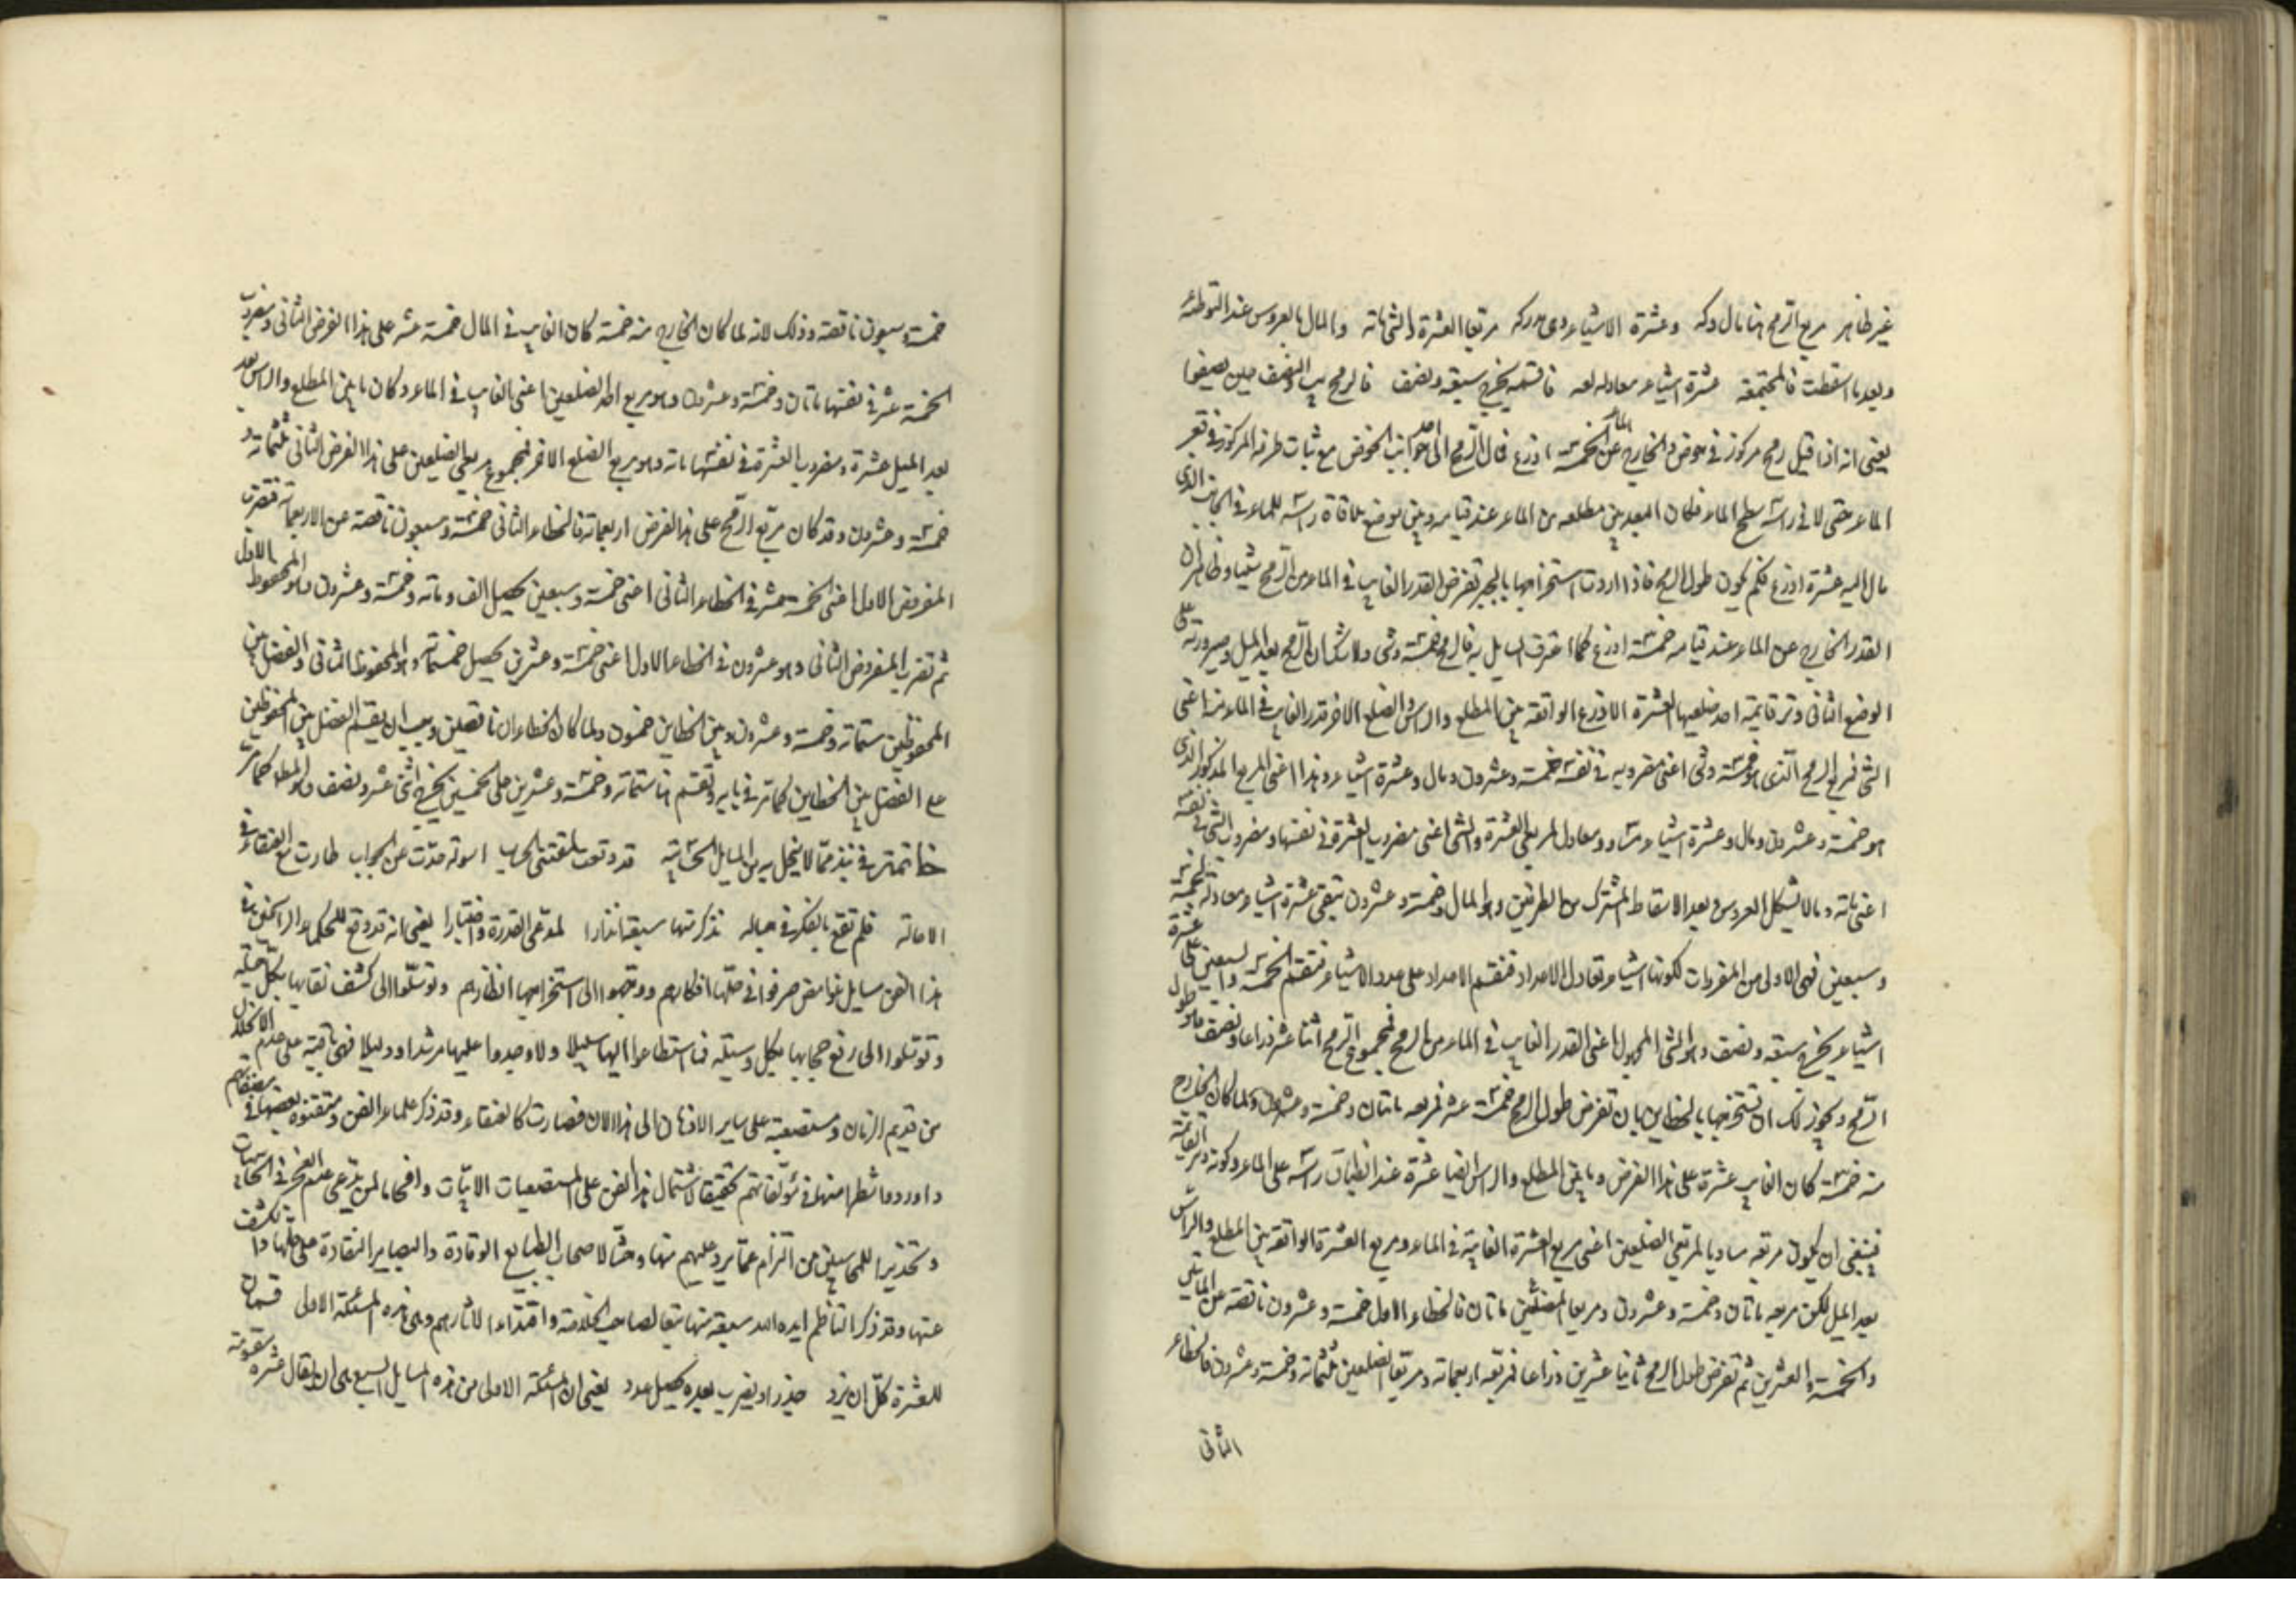 غير ظاهر مربع الرمح هنا مال وكه وعشرة الاشياء وهى مدركه مربعا العشرة والشى مائة والمال بالعروس عند التوطئه
وبعد ما اسقطت فالمجتمعة عشرة اشياء معادله لعه فالقسمة يخرج سبعة ونصف فالرمح يب والنصف حين يصيفوا
يعنى انه اذا قيل رمح مركوز فى حوض والخارج عن الماء الخمسة اذرع فمال الرمح الى احد جوانب الحوض مع ثبات طرفه المركوز فى قعر
الماء حتى لاقى راسه سطح الماء فكان البعد بين مطلعه من الماء عند قيامه وبين موضع ملاقاة راسه للماء فى الجانب الذى
مال اليه عشرة اذرع فكم يكون طول الرمح فاذا اردت استخراجها بالجبر تفرض القدر الغايب فى الماء من الرمح شيئا وظاهر ان
القدر الخارج عن الماء عند قيامه خمسة اذرع كما اعترف السايل به فالرمح خمسة وشى ولا شك ان الرمح بعد الميل وصيرورته على
الوضع الثانى وتر قائمة احد ضلعيها العشرة الاذرع الواقعة بين المطلع والراس والضلع الاخر قدر الغايب فى الماء منه اعنى
الشى فمربع الرمح الذى هو خمسة وشى اعنى مضروبه فى نفسه خمسة وعشرون ومال وعشرة اشياء وهذا اعنى المربع المذكور الذى
هو خمسة وعشرون ومال وعشرة اشياء مساو ومعادل لمربعى العشرة والشى اعنى مضروب العشرة فى نفسها ومضروب الشى فى نفسه
اعنى مائة ومالا بشكل العروس وبعد الاسقاط المشترك من الطرفين وهو المال وخمسة وعشرون تبقى عشرة اشياء معادلة لخمسة
وسبعين فهى الاولى من المفردات لكونها اشياء تعادل الاعداد فنقسم الاعداد على عدد الاشياء فنقسم الخمسة والسبعين على عشرة
اشياء يخرج سبعة ونصف وهو الشى المجهول اعنى القدر الغايب فى الماء من الرمح فمجموع الرمح اثنا عشر ذراعا ونصف وهو طول
الرمح ويجوز لك ان تستخرجها بالخطاين بان تفرض طول الرمح خمسة عشر فمربعه مائتان وخمسة وعشرون ولما كان الخارج
منه خمسة كان الغايب عشرة على هذا الفرض وما بين المطلع والراس ايضا عشرة عند انطباق راسه على الماء وكونه وتر القائمة
فينبغى ان يكون مربعه مساويا لمربعى الضلعين اعنى مربع العشرة الغايبة فى الماء ومربع العشرة الواقعة بين المطلع والراس
بعد الميل لكن مربعه مائتان وخمسة وعشرون ومربعا الضلعين مائتان فالخطاء الاول خمسة وعشرون ناقصة عن المايتين
والخمسة والعشرين ثم تفرض طول الرمح ثانيا عشرين ذراعا فمربعه اربعمائة ومربعا الضلعين ثلثمائة وخمسة وعشرون فالخطاء
الثانى
خمسة وسبعون ناقصة وذلك لانه لما كان الخارج منه خمسة كان الغايب فى المال خمسة عشر على هذا الفرض الثانى ومضروب
الخمسة عشر فى نفسها مائتان وخمسة وعشرون وهو مربع احد الضلعين اعنى الغايب فى الماء وكان ما بين المطلع والراس بعد
بعد الميل عشرة ومضروب العشرة فى نفسها مائة وهو مربع الضلع الاخر فمجموع مربعى الضلعين على هذا الفرض الثانى ثلثمائة و
خمسة وعشرون وقد كان مربع الرمح على هذا الفرض اربعمائة فالخطاء الثانى خمسة وسبعون ناقصة عن الاربعمائة فتضرب
المفروض الاول اعنى الخمسة عشر فى الخطاء الثانى اعنى خمسة وسبعين يحصل الف ومائة وخمسة وعشرون وهو المحفوظ الاول
ثم تضرب المفروض الثانى وهو عشرون فى الخطاء الاول اعنى خمسة وعشرين يحصل خمسمائة وهو المحفوظ الثانى والفضل بين
المحفوظين ستمائة وخمسة وعشرون وبين الخطاين خمسون ولما كان الخطاءان ناقصين وجب ان يقسم الفضل بين المحفوظين
على الفضل بين الخطاين كما مر فى بابه وتقسم هنا ستمائة وخمسة وعشرين على الخمسين يخرج اثنى عشر ونصف وهو المط كما مر
خاتمة فى نبذ مما لا ينحل به من المسايل الحسابية قد وقعت لمقتنى الحساب اسولة صدت عن الجواب طارت مع العنقاء فى
الاحالة فلم تقع بالفكر فى حباله نذكر منها سبعة انذارا لمدعى القدرة واختبارا يعنى انه قد وقع للحكماء الراسخين فى
هذا الفن مسايل غوامض صرفوا فى حلها افكارهم ووجهوا الى استخراجها انظارهم وتوسلوا الى كشف نقابها بكل حيلة
وتوصلوا الى رفع حجابها بكل وسيلة فما استطاعوا اليها سبيلا ولا وجدوا عليها مرشدا ودليلا فهى باقية على عدم الانحلال
من قديم الزمان ومستصعبة على ساير الاذهان الى هذا الان فصارت كالعنقاء وقد ذكر علماء الفن ومتقنوه بعضها فى مصنفاتهم
واوردوا شطرا منها فى مؤلفاتهم تحقيقا لاشتمال هذا الفن على المستصعبات الابيات وافحاما لمن يدعى عدم العجز فى الحسابيات
وتحذيرا للمحاسبين من التزام عما يرد عليهم منها وحثا لاصحاب الطبايع الوقادة والبصاير النقادة على حلها والكشف
عنها وقد ذكر الناظم ايده الله سبعة منها تبعا لصاحب الخلاصة واقتداء لاثارهم وهى هذه المسئلة الاولى قسمان
للعشرة كل ان يزد جذرا ويضرب بعده يحصل عدد يعنى ان المسئلة الاولى من هذه المسايل السبع هى ان يقال عشرة مقسومة